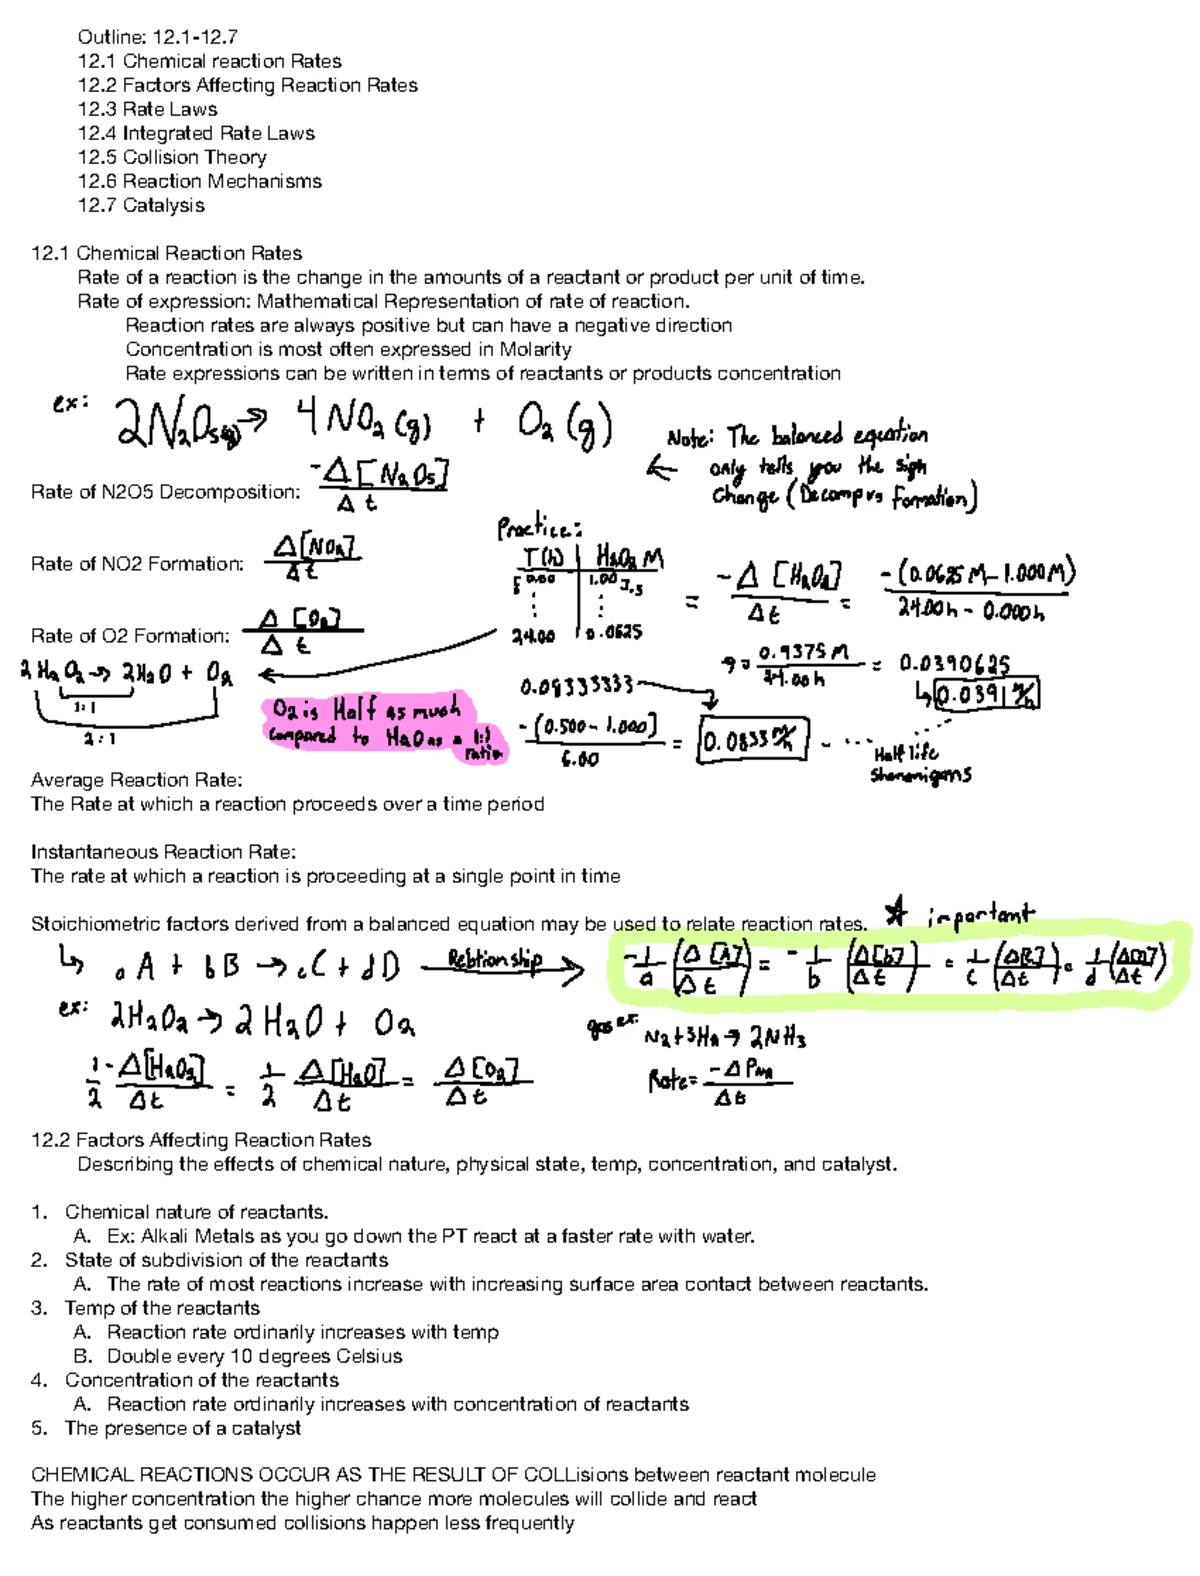 Outline: 12.1-12.7
12.1 Chemical reaction Rates
12.2 Factors Affecting Reaction Rates
12.3 Rate Laws
12.4 Integrated Rate Laws
12.5 Collision Theory
12.6 Reaction Mechanisms
12.7 Catalysis
12.1 Chemical Reaction Rates
Rate of a reaction is the change in the amounts of a reactant or product per unit of time.
Rate of expression: Mathematical Representation of rate of reaction.
Reaction rates are always positive but can have a negative direction
Concentration is most often expressed in Molarity
Rate expressions can be written in terms of reactants or products concentration
ex: 2N₂O₅(g) → 4NO₂(g) + O₂(g)
Note: The balanced equation
← only tells you the sign
change (Decomp vs formation)
Rate of N2O5 Decomposition: -Δ[N₂O₅]/Δt
Practice:
T(h) | H₂O₂ M
0.00 | 1.00
⋮ | ⋮
24.00 | 0.0625
Rate of NO2 Formation: Δ[NO₂]/Δt
= -Δ[H₂O₂]/Δt = -(0.0625M-1.000M)/24.00h-0.000h
Rate of O2 Formation: Δ[O₂]/Δt
0.9375M/24.00h = 0.0390625
↳ 0.0391 M/h
2H₂O₂ → 2H₂O + O₂
1:1
2:1
O₂ is Half as much
compared to H₂O as a 1:1
ratio
0.08333333
-(0.500-1.000)/6.00 = 0.0833 M/h
Half life
shenanigans
Average Reaction Rate:
The Rate at which a reaction proceeds over a time period
Instantaneous Reaction Rate:
The rate at which a reaction is proceeding at a single point in time
Stoichiometric factors derived from a balanced equation may be used to relate reaction rates. ★ important
↳ aA + bB → cC + dD Reltionship → -1/a (Δ[A]/Δt) = -1/b (Δ[b]/Δt) = 1/c (Δ[C]/Δt) = 1/d (Δ[D]/Δt)
ex: 2H₂O₂ → 2H₂O + O₂
gas ex: N₂+3H₂ → 2NH₃
1/2 -Δ[H₂O₂]/Δt = 1/2 Δ[H₂O]/Δt = Δ[O₂]/Δt
Rate = -ΔP_N₂/Δt
12.2 Factors Affecting Reaction Rates
Describing the effects of chemical nature, physical state, temp, concentration, and catalyst.
1. Chemical nature of reactants.
A. Ex: Alkali Metals as you go down the PT react at a faster rate with water.
2. State of subdivision of the reactants
A. The rate of most reactions increase with increasing surface area contact between reactants.
3. Temp of the reactants
A. Reaction rate ordinarily increases with temp
B. Double every 10 degrees Celsius
4. Concentration of the reactants
A. Reaction rate ordinarily increases with concentration of reactants
5. The presence of a catalyst
CHEMICAL REACTIONS OCCUR AS THE RESULT OF COLLisions between reactant molecule
The higher concentration the higher chance more molecules will collide and react
As reactants get consumed collisions happen less frequently